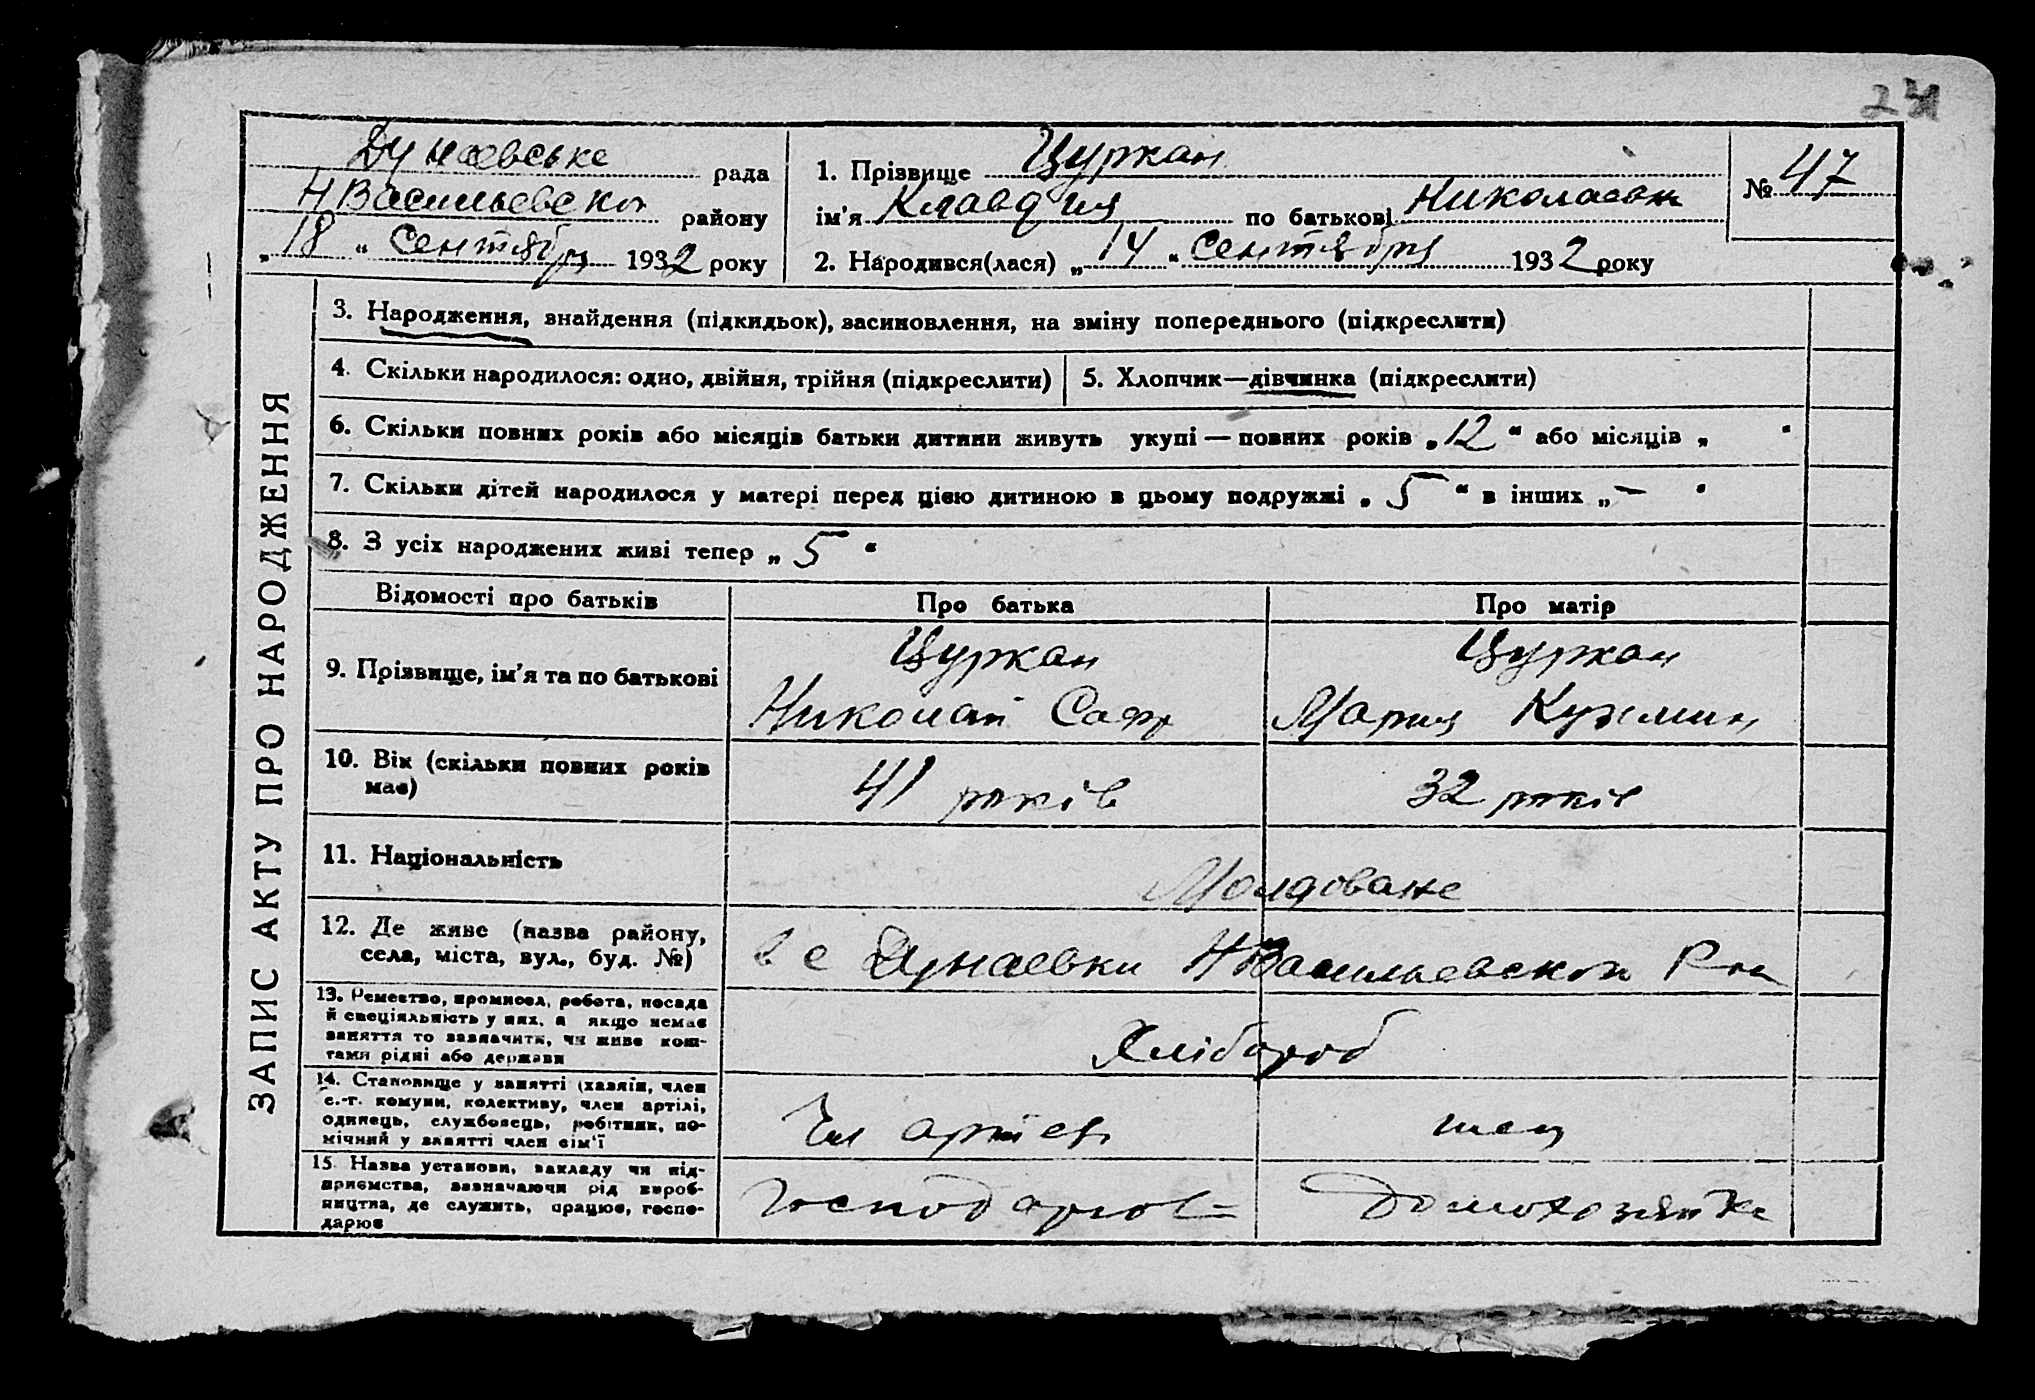 231
Дунаевське рада
НВасильевского району
„18“ Сентября 1932 року
1. Прізвище Цуркан
ім'я Клавдия по батькові Николаевн
2. Народився(лася) „14“ Сентября 1932 року
№ 47
ЗАПИС АКТУ ПРО НАРОДЖЕННЯ
3. Народження, знайдення (підкидьок), засиновлення, на зміну попереднього (підкреслити)
4. Скільки народилося: одно, двійня, трійня (підкреслити)
5. Хлопчик—дівчинка (підкреслити)
6. Скільки повних років або місяців батьки дитини живуть укупі — повних років „12“ або місяців „ “
7. Скільки дітей народилося у матері перед цією дитиною в цьому подружжі „5“ в інших „—“
8. З усіх народжених живі тепер „5“
Відомості про батьків
Про батька
Про матір
9. Прізвище, ім'я та по батькові
Цуркан
Николай Саф
Цуркан
Мария Кузьмин
10. Вік (скільки повних років
має)
41 років
32 років
11. Національність
Молдоване
12. Де живе (назва району,
села, міста, вул., буд. №)
в с Дунаевки НВасильевского Р на
13. Ремество, промисел, робота, посада
й спеціяльність у них, а якщо немає
заняття то зазначити, чи живе кош-
тами рідні або держави
Хлібороб
14. Становище у занятті (хазяїн, член
с.-г. комуни, колективу, член артілі,
одинець, службовець, робітник, по-
мічний у занятті член сім'ї
Чл артелі
15. Назва установи, закладу чи під-
приємства, зазначаючи рід вироб-
ництва, де служить, працює, госпо-
дарює
Господарює
Домохозяйка